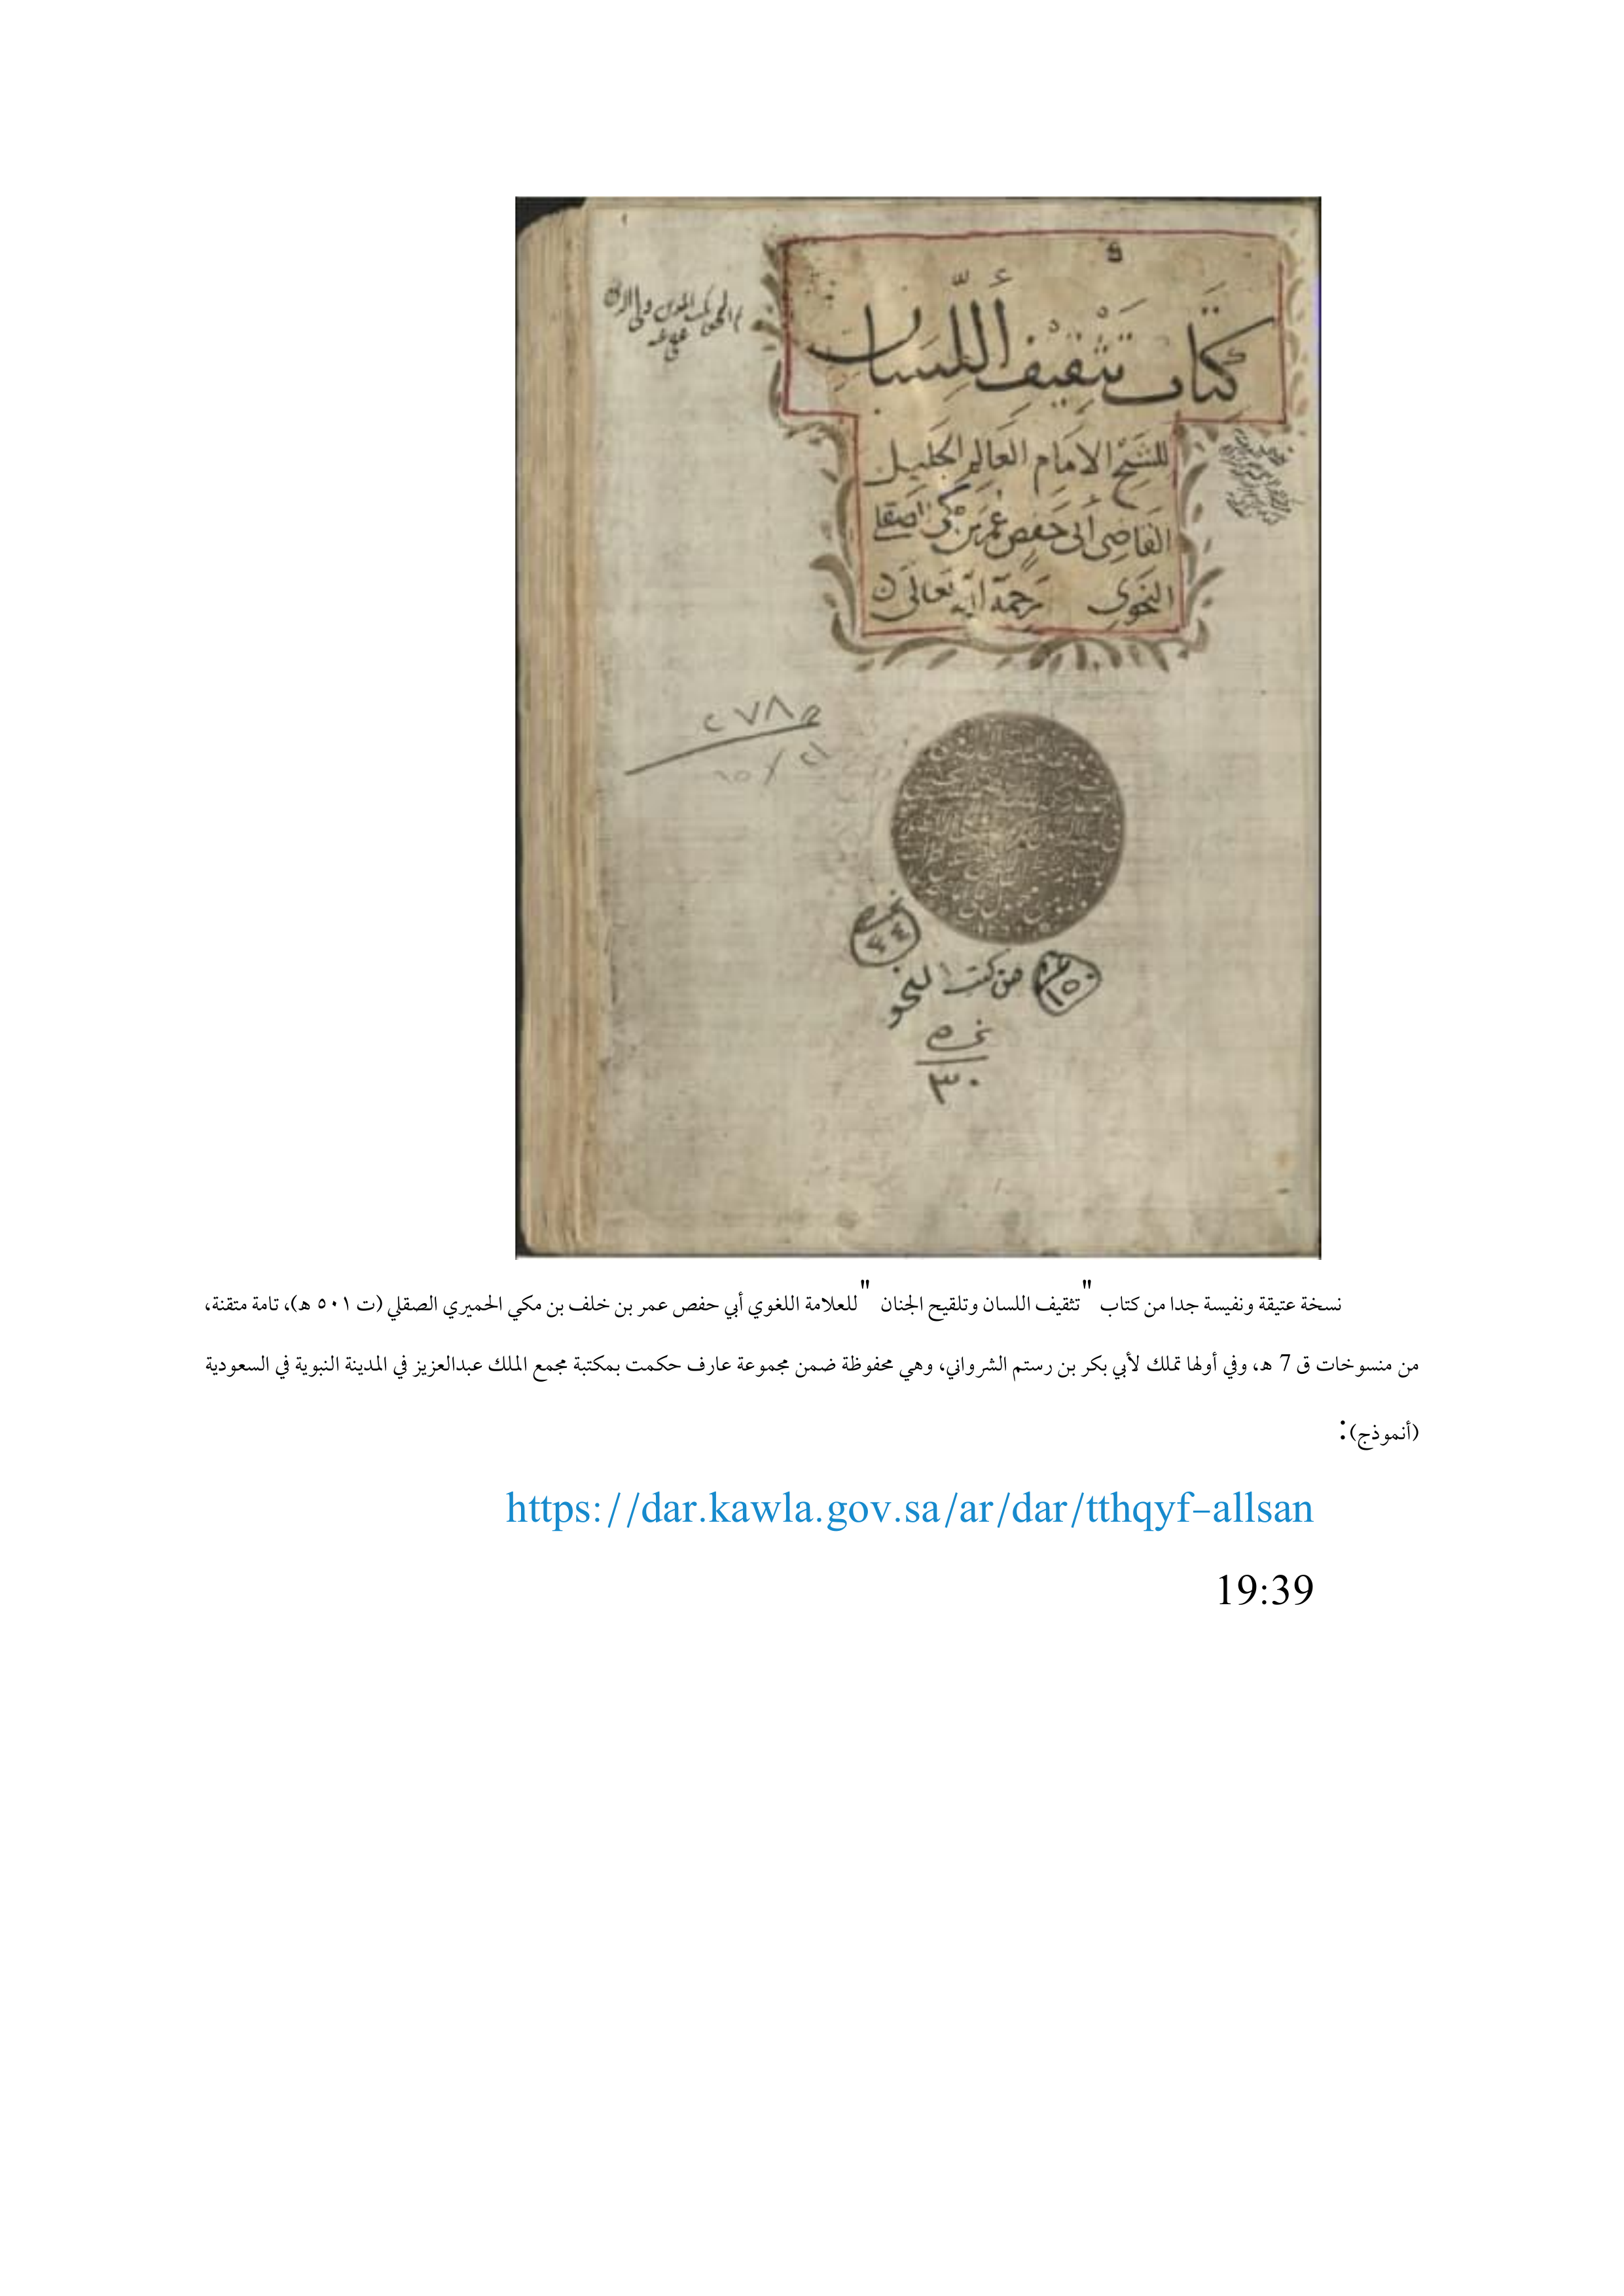 كتاب تثقيف أللّسان
للشيخ الامام العالم الجليل
القاضى أبى حفص عمر بن مكى الصقلى
النحوى رحمة الله تعالى
٢٧٨
نمره
٤٤
نمره
١٥
من كتب النحو
نمره
٣٠
نسخة عتيقة ونفيسة جدا من كتاب "تثقيف اللسان وتلقيح الجنان" للعلامة اللغوي أبي حفص عمر بن خلف بن مكي الحميري الصقلي (ت ٥٠١ هـ)، تامة متقنة،
من منسوخات ق 7 هـ، وفي أولها تملك لأبي بكر بن رستم الشرواني، وهي محفوظة ضمن مجموعة عارف حكمت بمكتبة مجمع الملك عبدالعزيز في المدينة النبوية في السعودية
(أنموذج):
https://dar.kawla.gov.sa/ar/dar/tthqyf-allsan
19:39